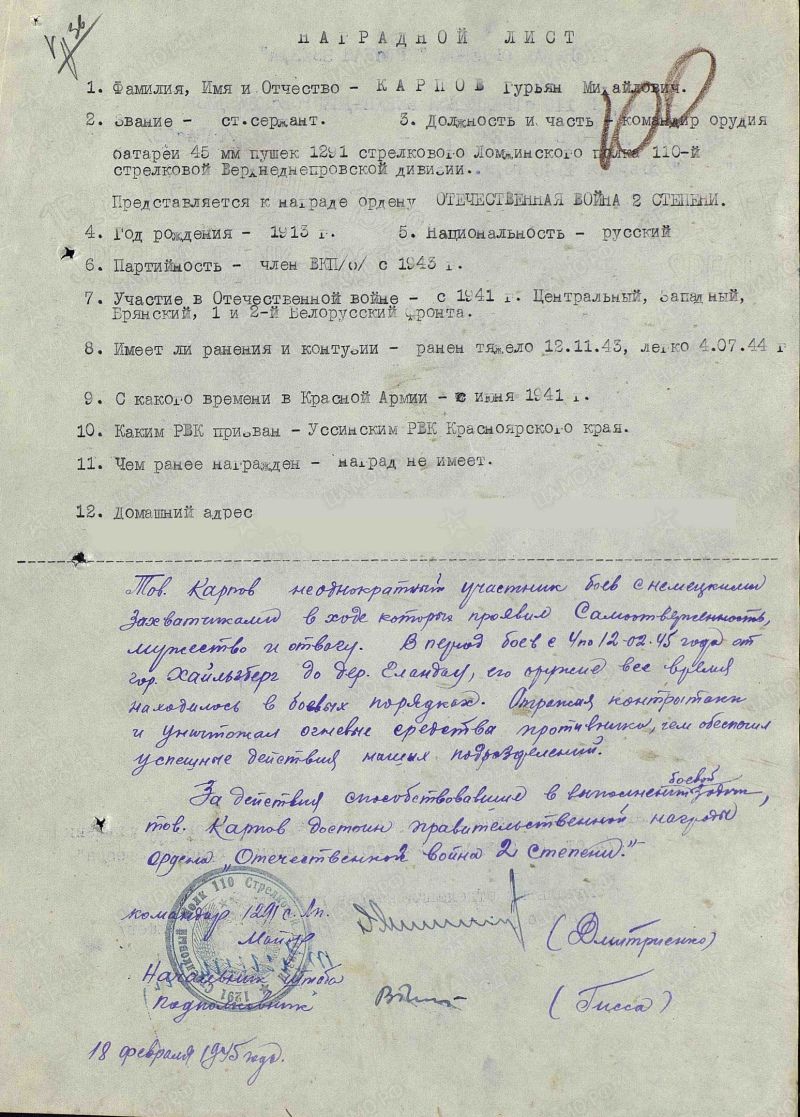 НАГРАДНОЙ ЛИСТ
1. Фамилия, Имя и Отчество - КАРПОВ Гурьян Михайлович.
2. Звание - ст.сержант. 3. Должность и часть - командир орудия
батареи 45 мм пушек 1291 стрелкового Ломжинского полка 110-й
стрелковой Верхнеднепровской дивизии.
Представляется к награде ордену ОТЕЧЕСТВЕННАЯ ВОЙНА 2 СТЕПЕНИ.
4. Год рождения - 1913 г. 5. Национальность - русский
6. Партийность - член ВКП/б/ с 1943 г.
7. Участие в Отечественной войне - с 1941 г. Центральный, Западный,
Брянский, 1 и 2-й Белорусский фронта.
8. Имеет ли ранения и контузии - ранен тяжело 12.11.43, легко 4.07.44 г
9. С какого времени в Красной Армии - с июня 1941 г.
10. Каким РВК призван - Уссинским РВК Красноярского края.
11. Чем ранее награжден - наград не имеет.
12. Домашний адрес
Тов. Карпов неоднократный участник боев с немецкими
захватчиками в ходе которых проявил самоотверженность,
мужество и отвагу. В период боев с 4 по 12-02-45 года от
гор. Хайльсберг до дер. Еландау, его оружие все время
находилось в боевых порядках. Отражая контратаки
и уничтожал огневые средства противника, чем обеспечил
успешные действия наших подразделений.
За действия способствовавшие в выполнении боевой
тов. Карпов достоин правительственной награды
ордена „Отечественной война 2 степени."
командир 1291 с.Лп.
Майор (Дмитриенко)
Начальник штаба
подполковник (Гисса)
18 февраля 1945 года.
1291 Стрелковый полк 110 Стрелковой